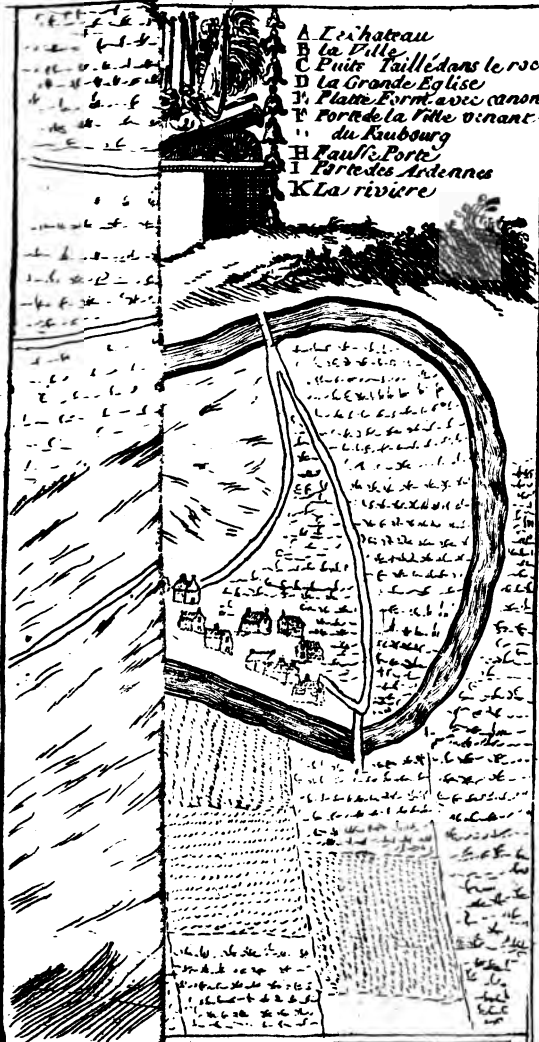 A Le chateau
B la Ville
C Puits Taillé dans le roc
D la Grande Eglise
E Platte Form avec canon
F Porte de la Ville venant
du Faubourg
H Fausse Porte
I Porte des Ardennes
K La riviere